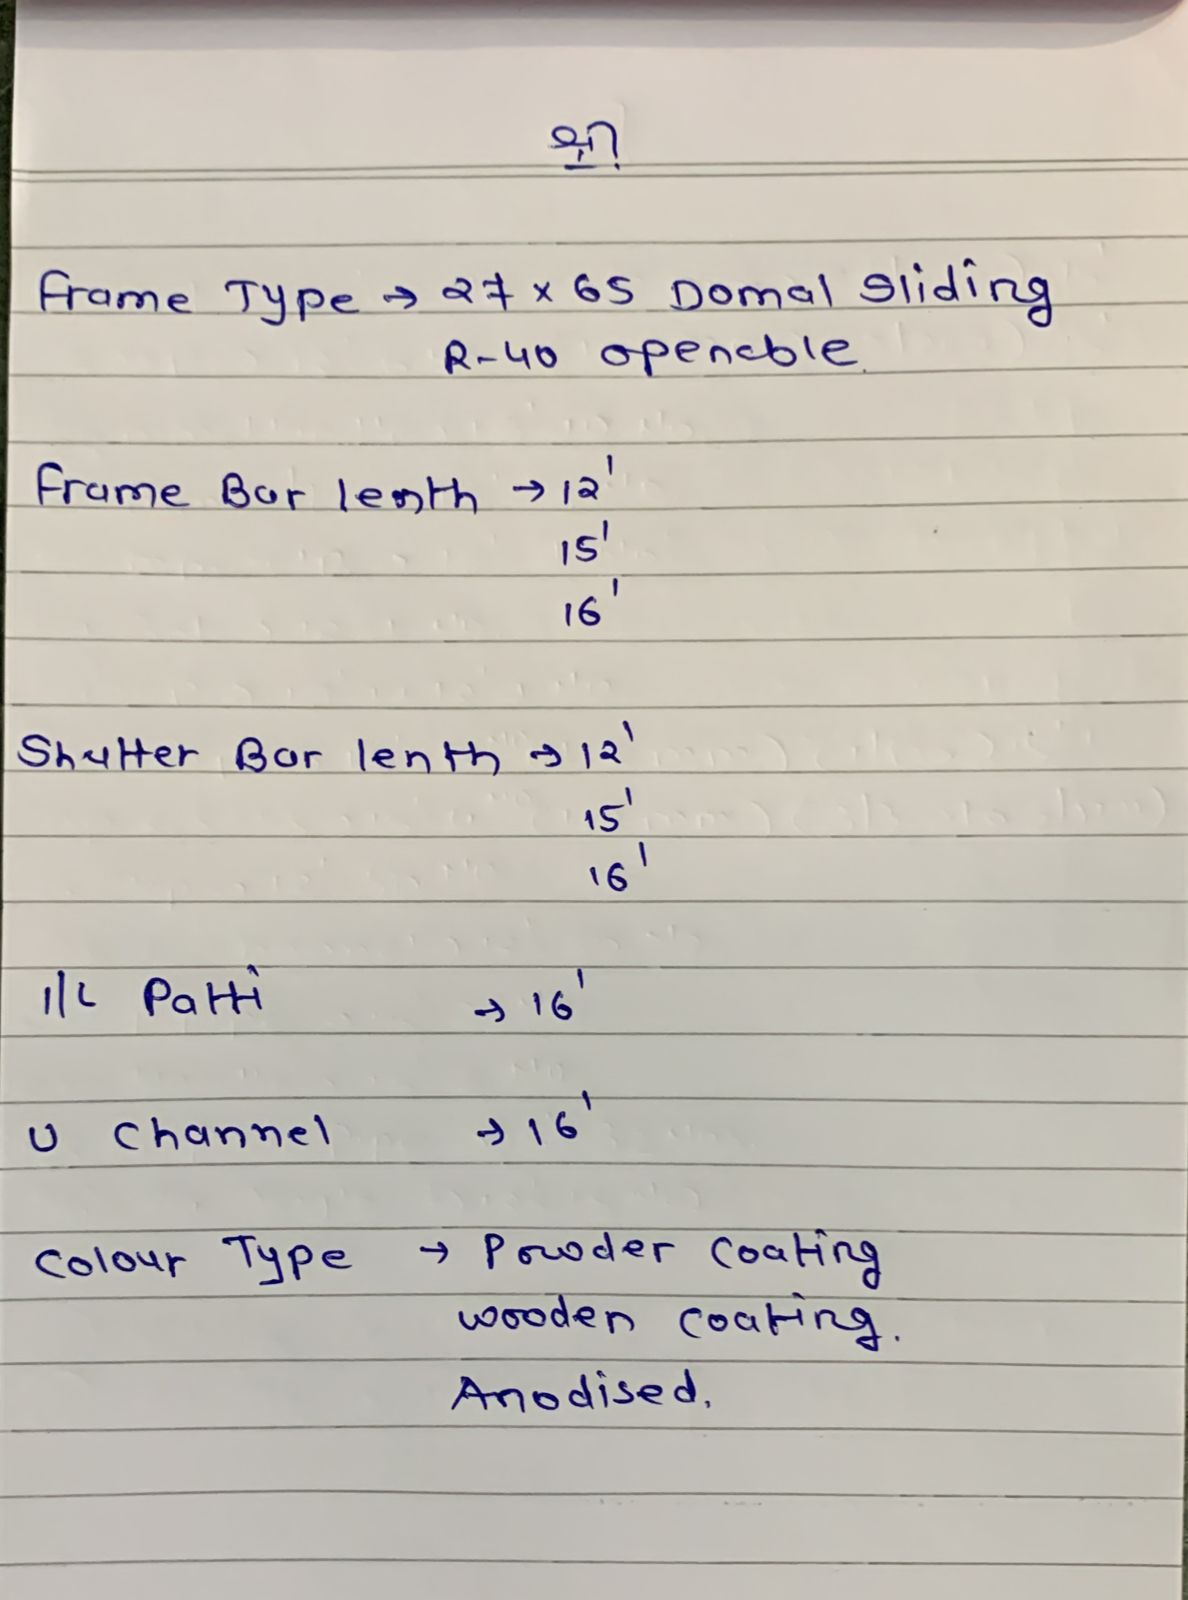 श्री
Frame Type → 27 x 65 Domal Sliding
R-40 openable
Frame Bar length → 12'
15'
16'
Shutter Bar lenth → 12'
15'
16'
I/L Patti → 16'
U Channel → 16'
Colour Type → Powder Coating
wooden coating.
Anodised.